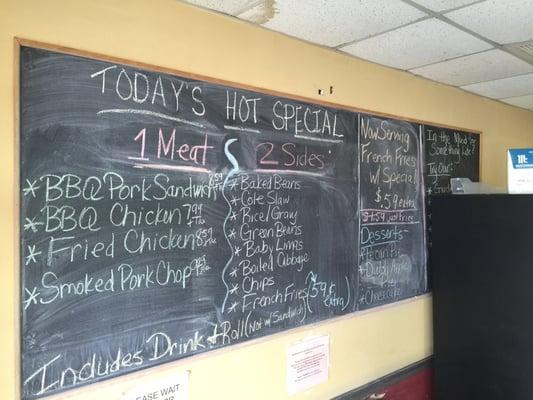 TODAY'S HOT SPECIAL
1 Meat
* BBQ Pork Sandwich
* BBQ Chicken 7.99 + Tax
* Fried Chicken + Tax
* Smoked Pork Chop
Includes Drink + Roll (Not w/ Sandwich)
2 Sides
* Baked Beans
* Cole Slaw
* Rice/Gravy
* Green Beans
* Baby Limas
* Boiled Cabbage
* Chips
* French Fries (59¢ extra)
Now Serving
French Fries
w/ Special
$.59 extra
$1.59 just Fries
Desserts
Pecan Pie
Dutch Apple
Pie
Cheesecake
In the Mood for
Something Else?
Try Our:
PLEASE WAIT